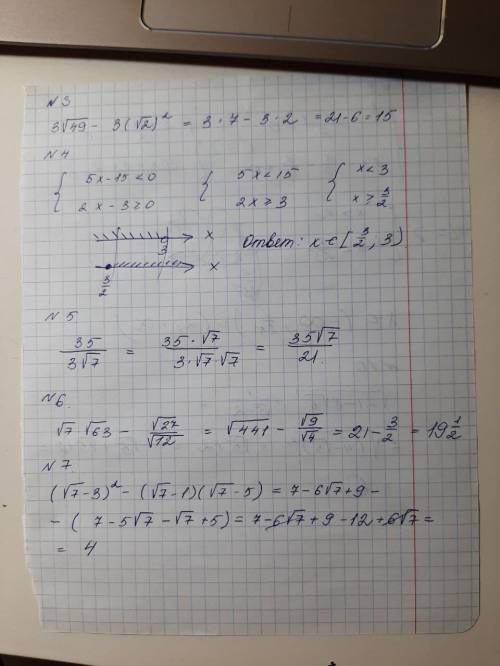 N 3
3√49 - 3(√2)² = 3 · 7 - 3 · 2 = 21-6 = 15
N 4
{ 5x-15 < 0 { 5x < 15 { x < 3
2x - 3 ≥ 0 2x ≥ 3 x ≥ 3/2
3 x Ответ: x ∈ [3/2, 3)
3/2 x
N 5
35/(3√7) = (35 · √7)/(3 · √7 · √7) = 35√7/21
N 6.
√7 · √63 - √27/√12 = √441 - √9/√4 = 21 - 3/2 = 19 1/2
N 7
(√7-3)² - (√7-1)(√7-5) = 7-6√7+9 -
- ( 7-5√7 -√7 +5) = 7-6√7+9-12+6√7 =
= 4